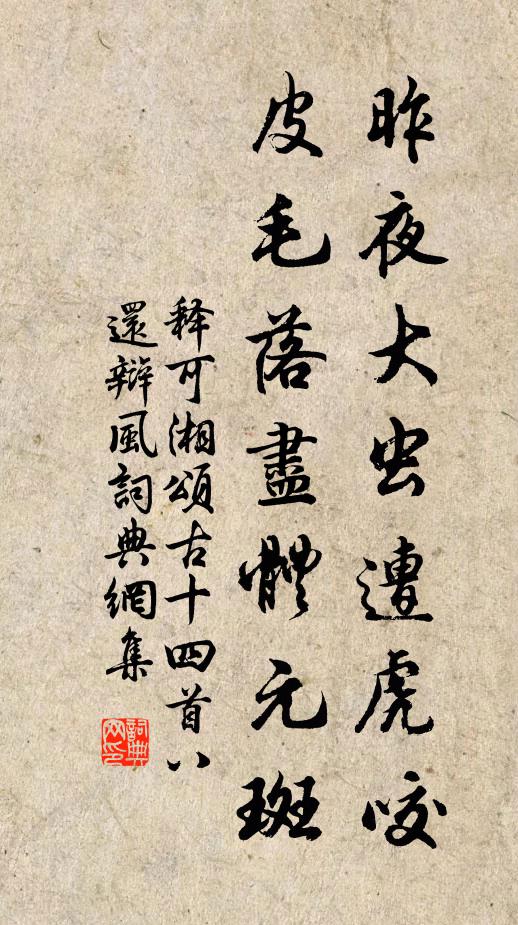 昨夜大虫遭虎咬
皮毛落盡體元斑
释可湘頌古十四首八
還辯風詞典網集
詞典
网印